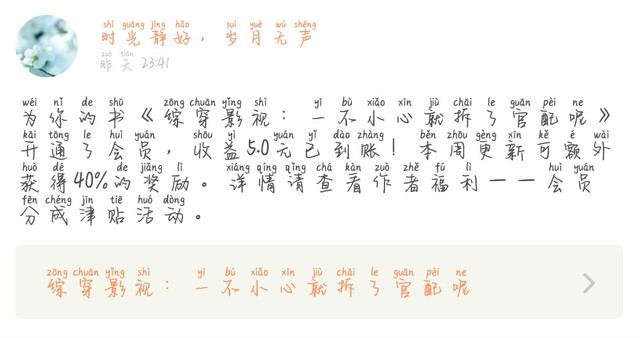 shí guāng jìng hǎo suì yuè wú shēng
时光静好，岁月无声
zuó tiān
昨天 23:41
wéi nǐ de shū zōng chuān yǐng shì yī bù xiǎo xīn jiù chāi le guān pèi ne
为你的书《综穿影视：一不小心就拆了官配呢》
kāi tōng le huì yuán shōu yì yuán yǐ dào zhàng běn zhōu gèng xīn kě é wài
开通了会员，收益5.0元已到账！本周更新可额外
huò dé de jiǎng lì xiáng qíng qǐng chá kàn zuò zhě fú lì huì yuán
获得40%的奖励。详情请查看作者福利——会员
fēn chéng jīn tiē huó dòng
分成津贴活动。
zōng chuān yǐng shì yī bù xiǎo xīn jiù chāi le guān pèi ne
综穿影视：一不小心就拆了官配呢